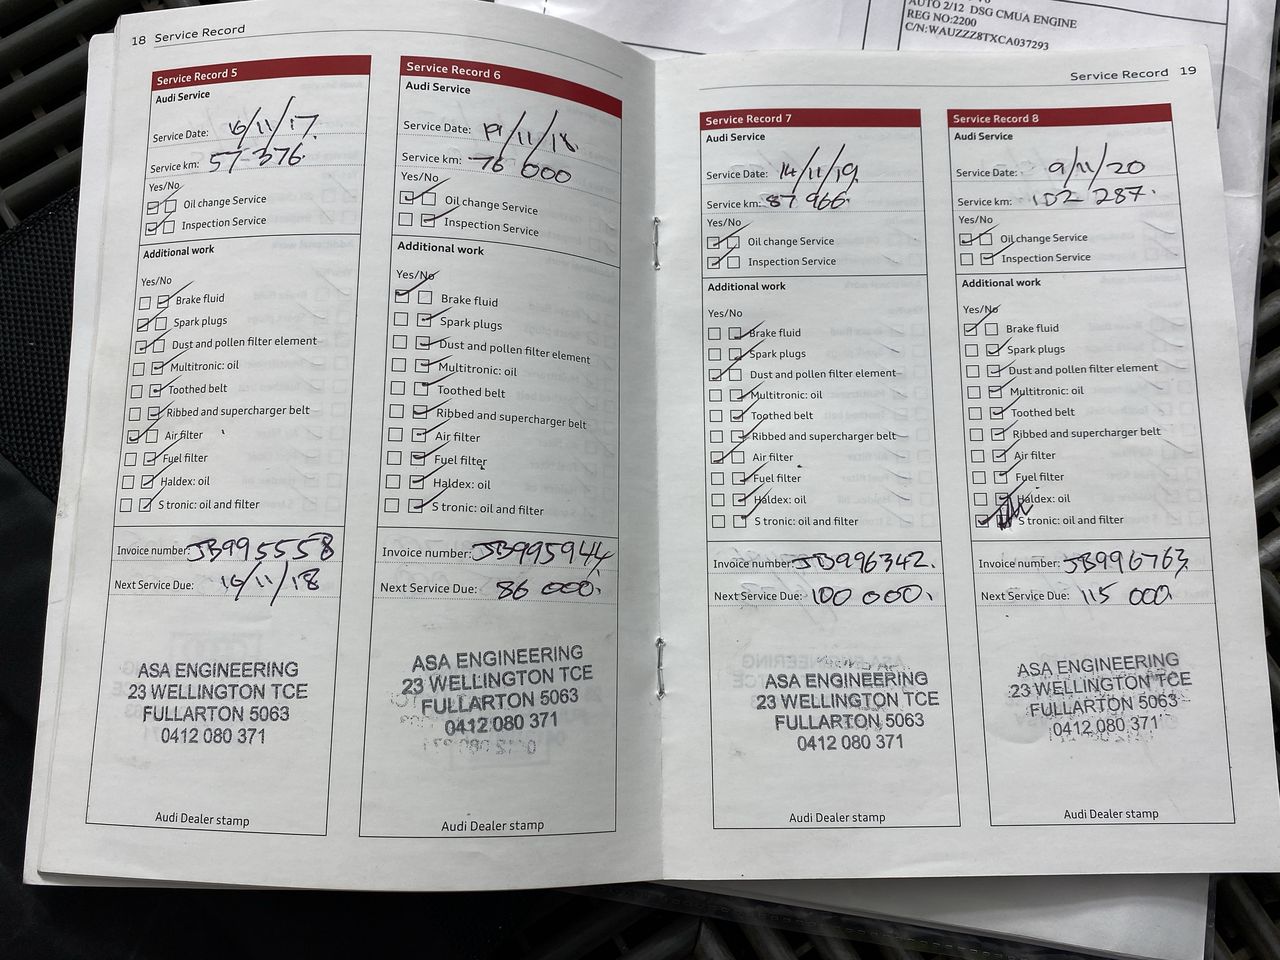 AUTO 2/12 DSG CMUA ENGINE
REG NO:2200
C/N:WAUZZZ8TXCA037293
18 Service Record
Service Record 5
Audi Service
Service Date: 16/11/17.
Service km: 57-376.
Yes/No
Oil change Service
Inspection Service
Additional work
Yes/No
Brake fluid
Spark plugs
Dust and pollen filter element
Multitronic: oil
Toothed belt
Ribbed and supercharger belt
Air filter
Fuel filter
Haldex: oil
S tronic: oil and filter
Invoice number: JB995558
Next Service Due: 16/11/18
ASA ENGINEERING
23 WELLINGTON TCE
FULLARTON 5063
0412 080 371
Audi Dealer stamp
Service Record 6
Audi Service
Service Date: 19/11/18.
Service km: 76 000
Yes/No
Oil change Service
Inspection Service
Additional work
Yes/No
Brake fluid
Spark plugs
Dust and pollen filter element
Multitronic: oil
Toothed belt
Ribbed and supercharger belt
Air filter
Fuel filter
Haldex: oil
S tronic: oil and filter
Invoice number: JB995944
Next Service Due: 86 000.
ASA ENGINEERING
23 WELLINGTON TCE
FULLARTON 5063
0412 080 371
Audi Dealer stamp
Service Record 19
Service Record 7
Audi Service
Service Date: 14/11/19.
Service km: 87 966.
Yes/No
Oil change Service
Inspection Service
Additional work
Yes/No
Brake fluid
Spark plugs
Dust and pollen filter element
Multitronic: oil
Toothed belt
Ribbed and supercharger belt
Air filter
Fuel filter
Haldex: oil
S tronic: oil and filter
Invoice number: JB996342.
Next Service Due: 100 000.
ASA ENGINEERING
23 WELLINGTON TCE
FULLARTON 5063
0412 080 371
Audi Dealer stamp
Service Record 8
Audi Service
Service Date: 9/11/20
Service km: 102 287.
Yes/No
Oil change Service
Inspection Service
Additional work
Yes/No
Brake fluid
Spark plugs
Dust and pollen filter element
Multitronic: oil
Toothed belt
Ribbed and supercharger belt
Air filter
Fuel filter
Haldex: oil
S tronic: oil and filter
Invoice number: JB996763
Next Service Due: 115 000
ASA ENGINEERING
23 WELLINGTON TCE
FULLARTON 5063
0412 080 371
Audi Dealer stamp